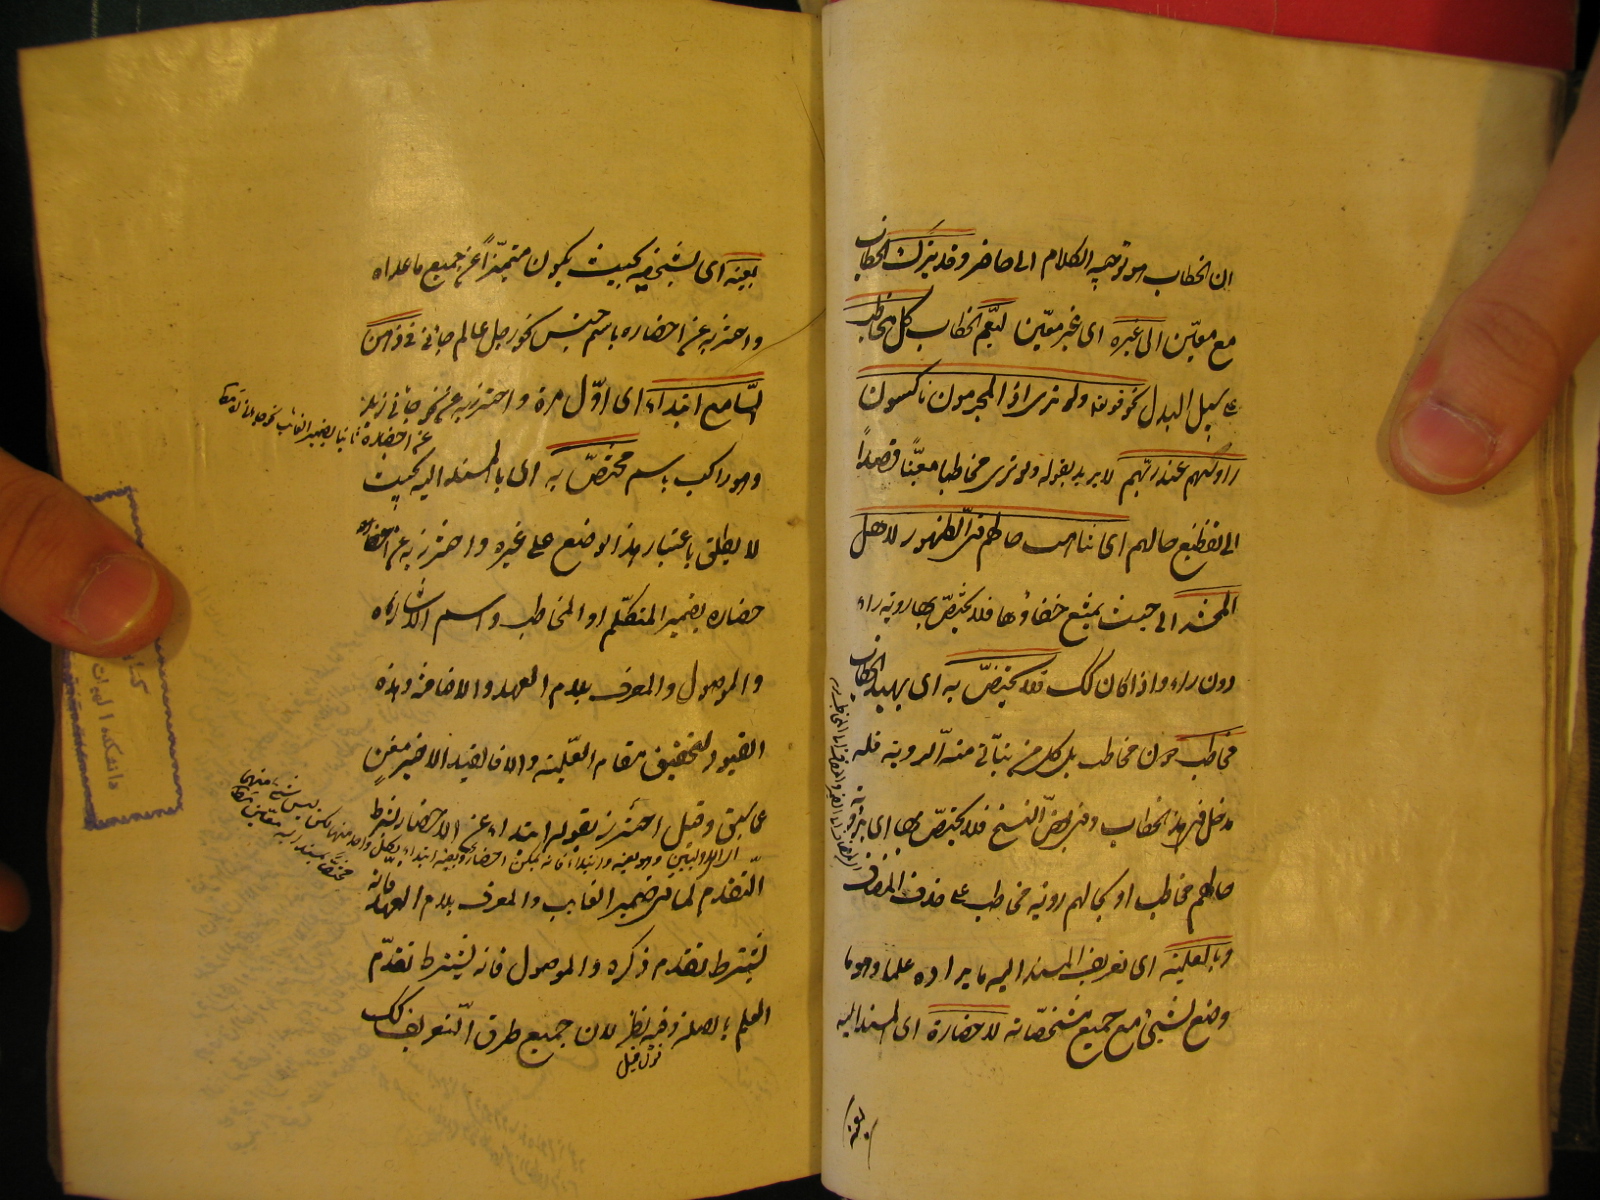 ان الخطاب هو توجيه الكلام الى حاضر وقد يترك الخطاب
مع معيّن الى غيره اى غير معيّن ليعمّ الخطاب كل مخاطب
على سبيل البدل نحو قوله ولو ترى اذ المجرمون ناكسوا
رؤسهم عند ربّهم لا يريد بقوله ولو ترى مخاطبا معيّنا قصدًا
الى تفظيع حالهم اى تناهت حالهم فى الظهور لاهل
المحشر الى حيث يمتنع خفاؤها فلا يختصّ بها رؤية راء
دون راء واذا كان كك فلا يختصّ به اى بهذا الخطاب
مخاطب دون مخاطب بل كل من يتأتى منه الروية فله
مدخل فى هذا الخطاب وفى بعض النسخ فلا يختصّ بها اى برؤية
حالهم مخاطب او بحالهم رؤية مخاطب على حذف المضاف
وبالعلمية اى تعريف المسند اليه بايراده علما وهو ما
وضع لشئ مع جميع مشخصاته لاحضاره اى المسند اليه
بعينه
بعينه اى بشخصه بحيث يكون متميّزًا عن جميع ما عداه
واحترز به عن احضاره باسم جنسه نحو رجل عالم جائنى فى ذهن
السّامع ابتداء اى اوّل مرة واحترز به عن نحو جائنى زيد
عن احضاره ثانيا بضمير الغائب نحو جائنى زيد
وهو راكب باسم مختصّ به اى بالمسند اليه بحيث
لا يطلق باعتبار هذا الوضع على غيره واحترز به عن
حضاره بضمير المتكلّم او المخاطب واسم الاشارة
والموصول والمعرف بلام العهد والاضافة وهذه
القيود لتحقيق مقام العلمية والا فالقيد الاخير مغن
عما سبق وقيل احترز بقوله ابتداء عن الاحضار بشرط
التقدم كما فى ضمير الغايب والمعرف بلام العهد فانه
يشترط تقدم ذكره والموصول فانه يشترط تقدّم
العلم بالصلة وفيه نظر لان جميع طرق التعريف كك